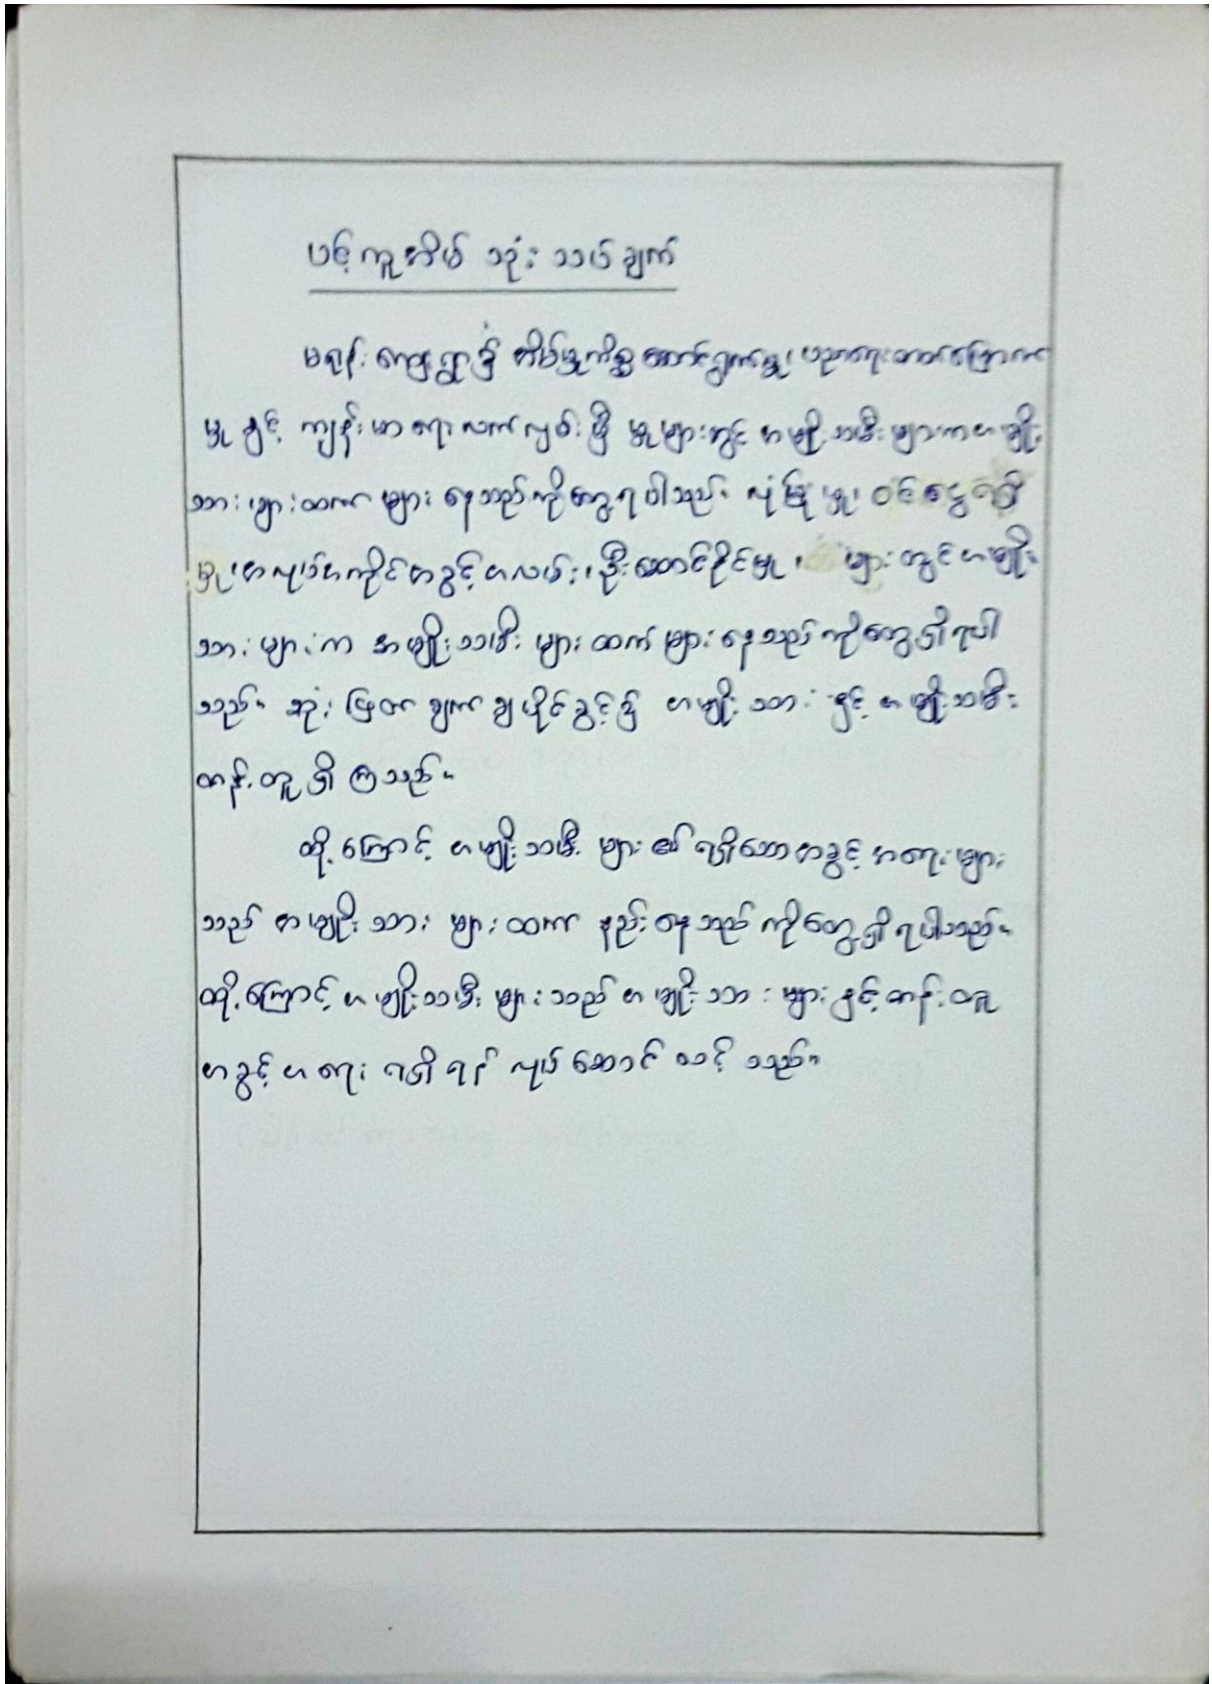 ပင့်ကူအိမ် သုံးသပ်ချက်
မရန်းကျေးရွာ၌ အိမ်မှုကိစ္စဆောင်ရွက်မှု၊ ပညာရေးတတ်မြောက်
မှုနှင့် ကျန်းမာရေးလက်လှမ်းမှီမှုများတွင် အမျိုးသမီးများကအမျိုး
သားများထက် များနေသည်ကိုတွေ့ရပါသည်။ လုံခြုံမှု၊ ဝင်ငွေရရှိ
မှု၊ အလုပ်အကိုင်အခွင့်အလမ်း၊ ဦးဆောင်နိုင်မှု၊ များတွင်အမျိုး
သားများက အမျိုးသမီးများထက်များနေသည်ကိုတွေ့ရှိရပါ
သည်။ ဆုံးဖြတ်ချက်ချပိုင်ခွင့်၌ အမျိုးသားနှင့် အမျိုးသမီး
တန်းတူရှိကြသည်။
ထို့ကြောင့် အမျိုးသမီးများ၏ ရရှိသောအခွင့်အရေးများ
သည် အမျိုးသားများထက် နည်းနေသည်ကိုတွေ့ရှိရပါသည်။
ထို့ကြောင့် အမျိုးသမီးများသည် အမျိုးသားများနှင့်တန်းတူ
အခွင့်အရေးရရှိရန် လုပ်ဆောင်သင့်သည်။